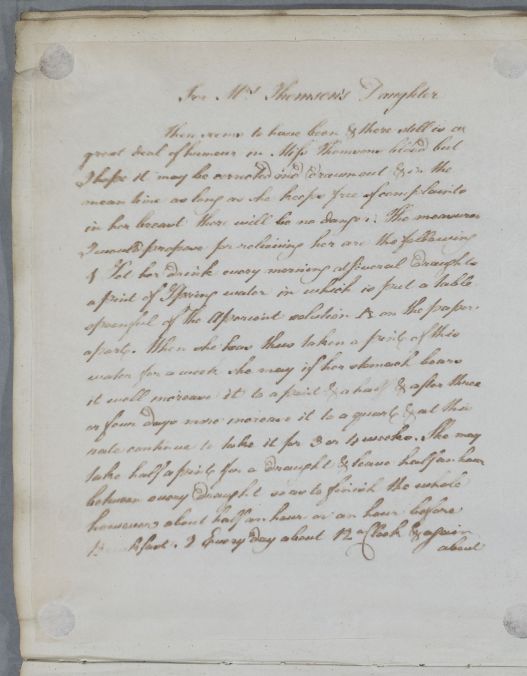 For Mrs Thomson's Daughter
There seems to have been & there still is a
great deal of humour in Miss Thomsons blood but
I hope it may be corrected and drawn out & in the
mean time as long as she keeps free of complaints
in her breast there will be no danger. The measures
I would propose for relieving her are the following
1 Let her drink every morning at several draughts
a pint of Spring water in which is put a table
spoonful of the aperient solution ℞ on the paper
apart. When she has thus taken a pint of this
water for a week she may if her stomach bears
it well increase it to a pint & a half & after three
or four days more increase it to a quart & at that
rate continue to take it for 3 or 4 weeks. She may
take half a pint for a draught & leave half an hour
between every draught so as to finish the whole
however about half an hour or an hour before
Breakfast. 2 Every day about 12 a Clock & again
about